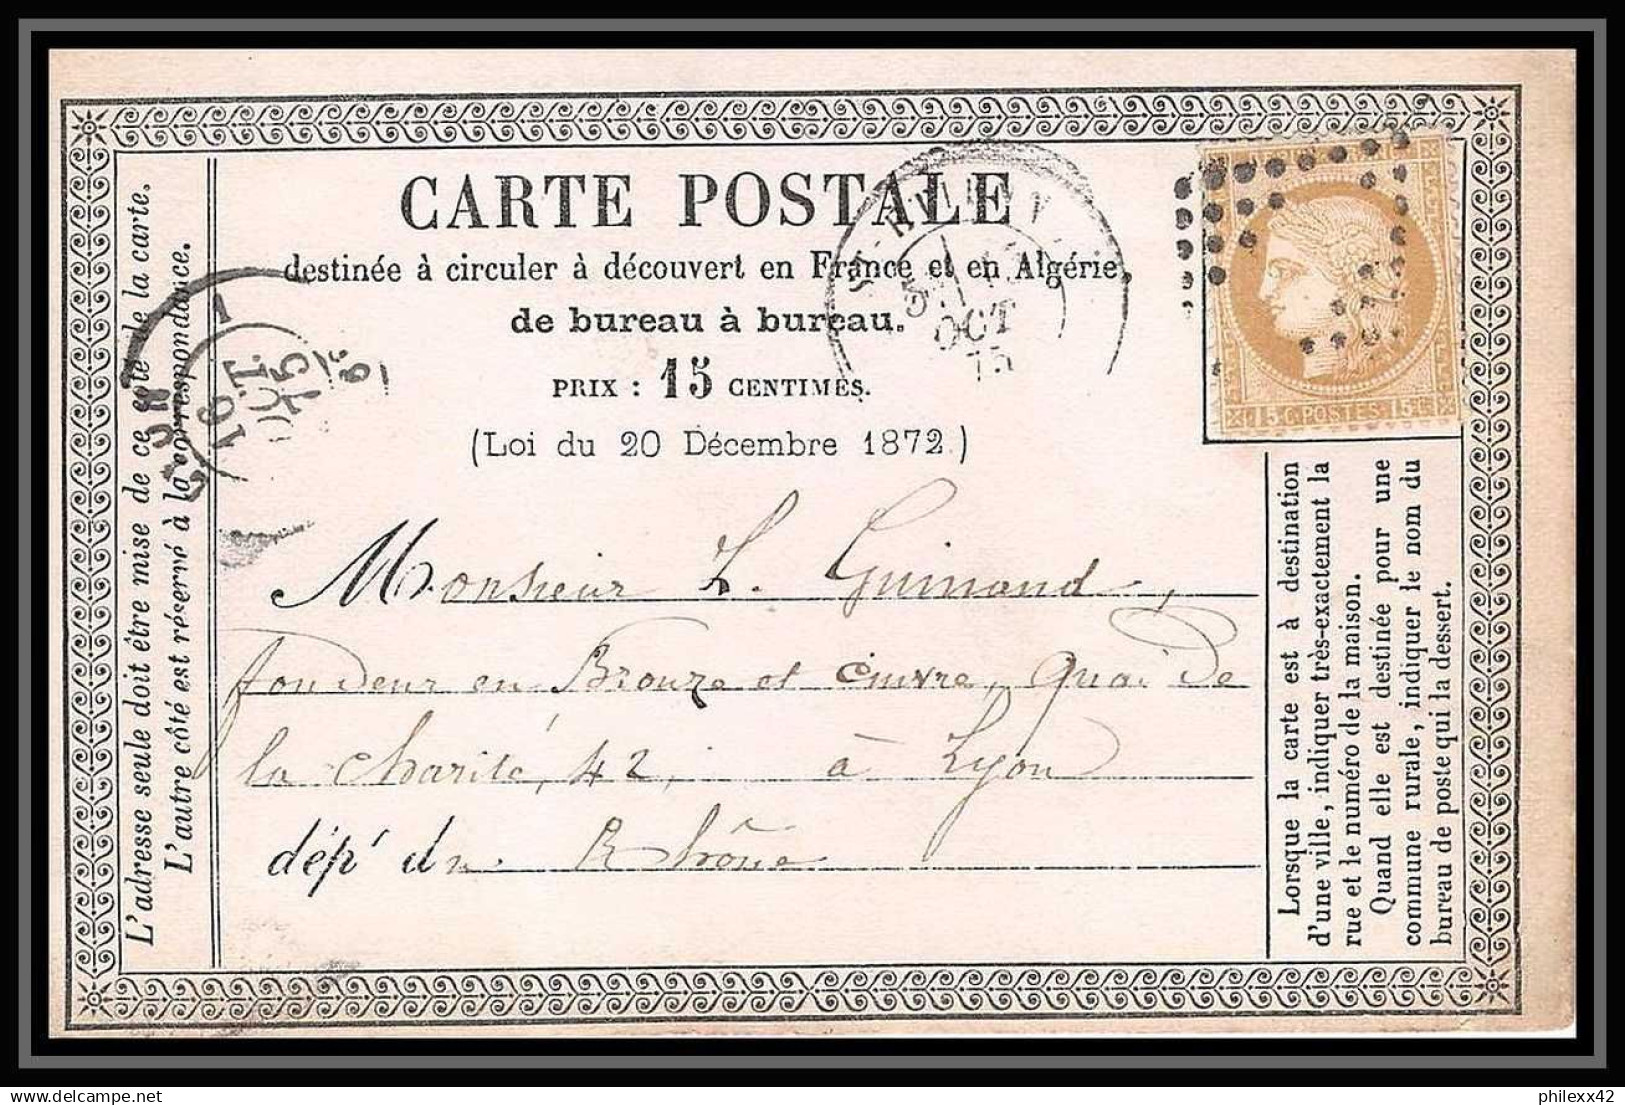 CARTE POSTALE
destinée à circuler à découvert en France et en Algérie,
de bureau à bureau.
PRIX : 15 CENTIMES.
(Loi du 20 Décembre 1872.)
OCT
75
15 C. POSTES. 15 C.
1
16
OCT.
75
L'adresse seule doit être mise de ce côté de la carte.
L'autre côté est réservé à la correspondance.
Monsieur L. Guimand,
fondeur en Bronze et cuivre, Quai De
la Charité, 42, à Lyon
dépt du Rhône
Lorsque la carte est à destination
d'une ville, indiquer très-exactement la
rue et le numéro de la maison.
Quand elle est destinée pour une
commune rurale, indiquer le nom du
bureau de poste qui la dessert.
delcampe.net
philexx42